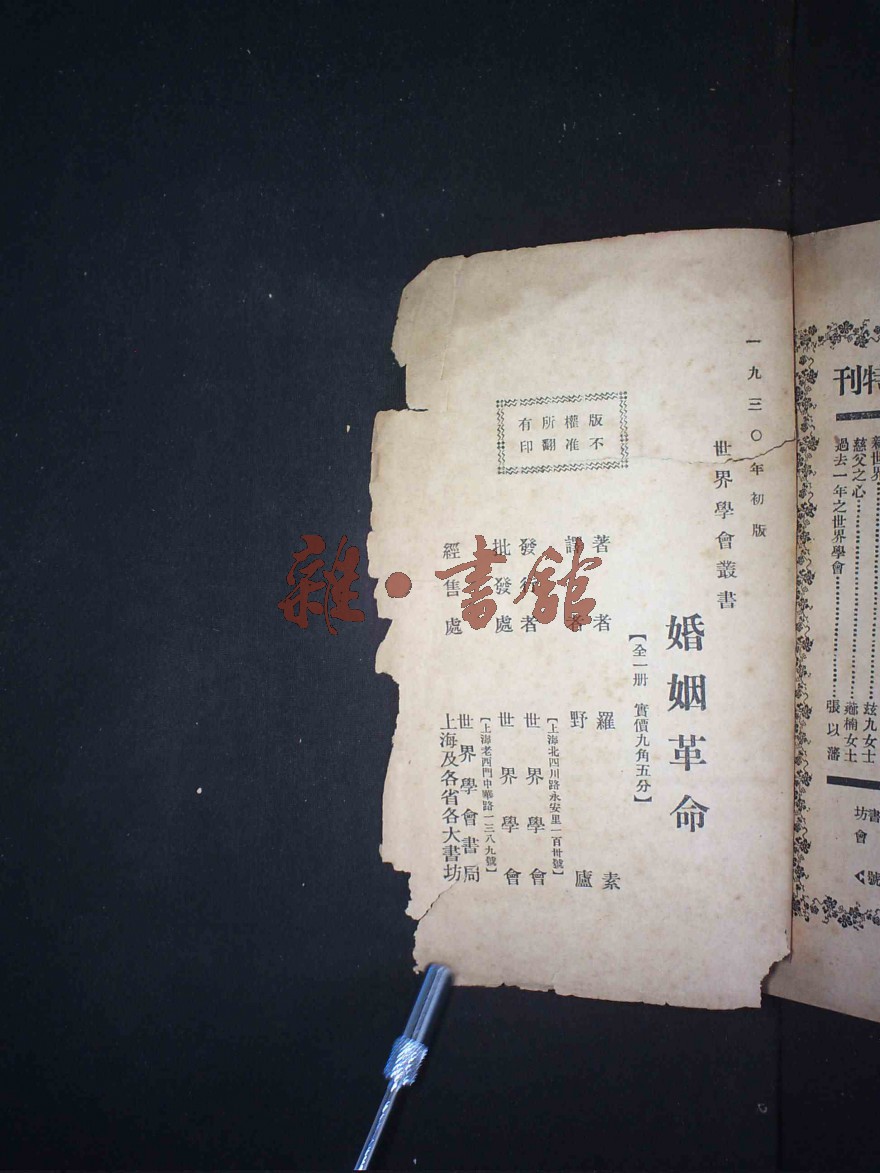 特刊
新世界
慈父之心
過去一年之世界學會
玆九女士
薌楠女士
張以藩
書坊
會
號
一九三〇年初版
世界學會叢書
婚姻革命
【全一册 實價九角五分】
著者 羅素
譯者 野廬
發行者 世界學會
【上海北四川路永安里一百卅號】
批發處 世界學會
【上海老西門中華路一三八九號】
經售處 世界學會書局
上海及各省各大書坊
版權所有
不准翻印
雜·書館